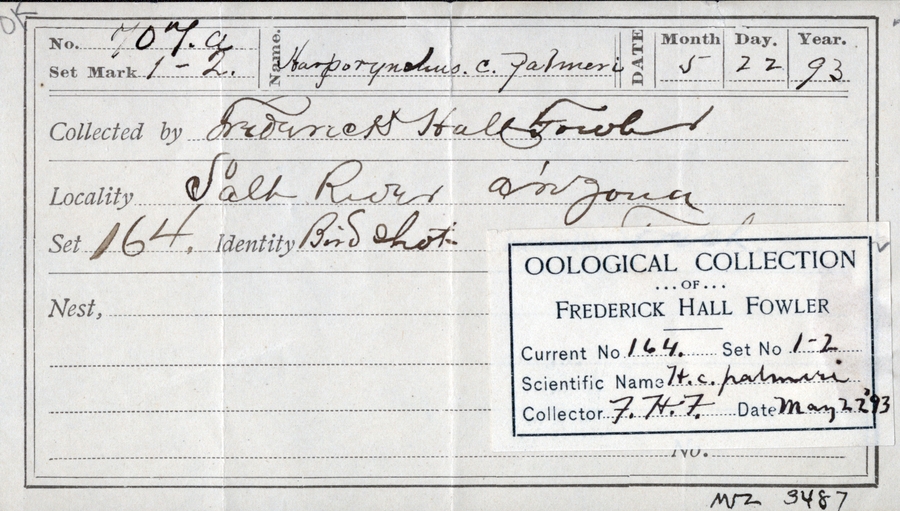 OK
No. 707.a
Set Mark 1-2.
Name. Harporynchus. c. palmeri
DATE Month 5 Day. 22 Year. 93
Collected by Frederick Hall Fowler
Locality Salt River Arizona
Set 164. Identity Bird shot
Nest,
OOLOGICAL COLLECTION
...OF...
FREDERICK HALL FOWLER
Current No 164. Set No 1-2
Scientific Name H.c. palmeri
Collector F.H.F. Date May 22 '93
No.
MVZ 3487